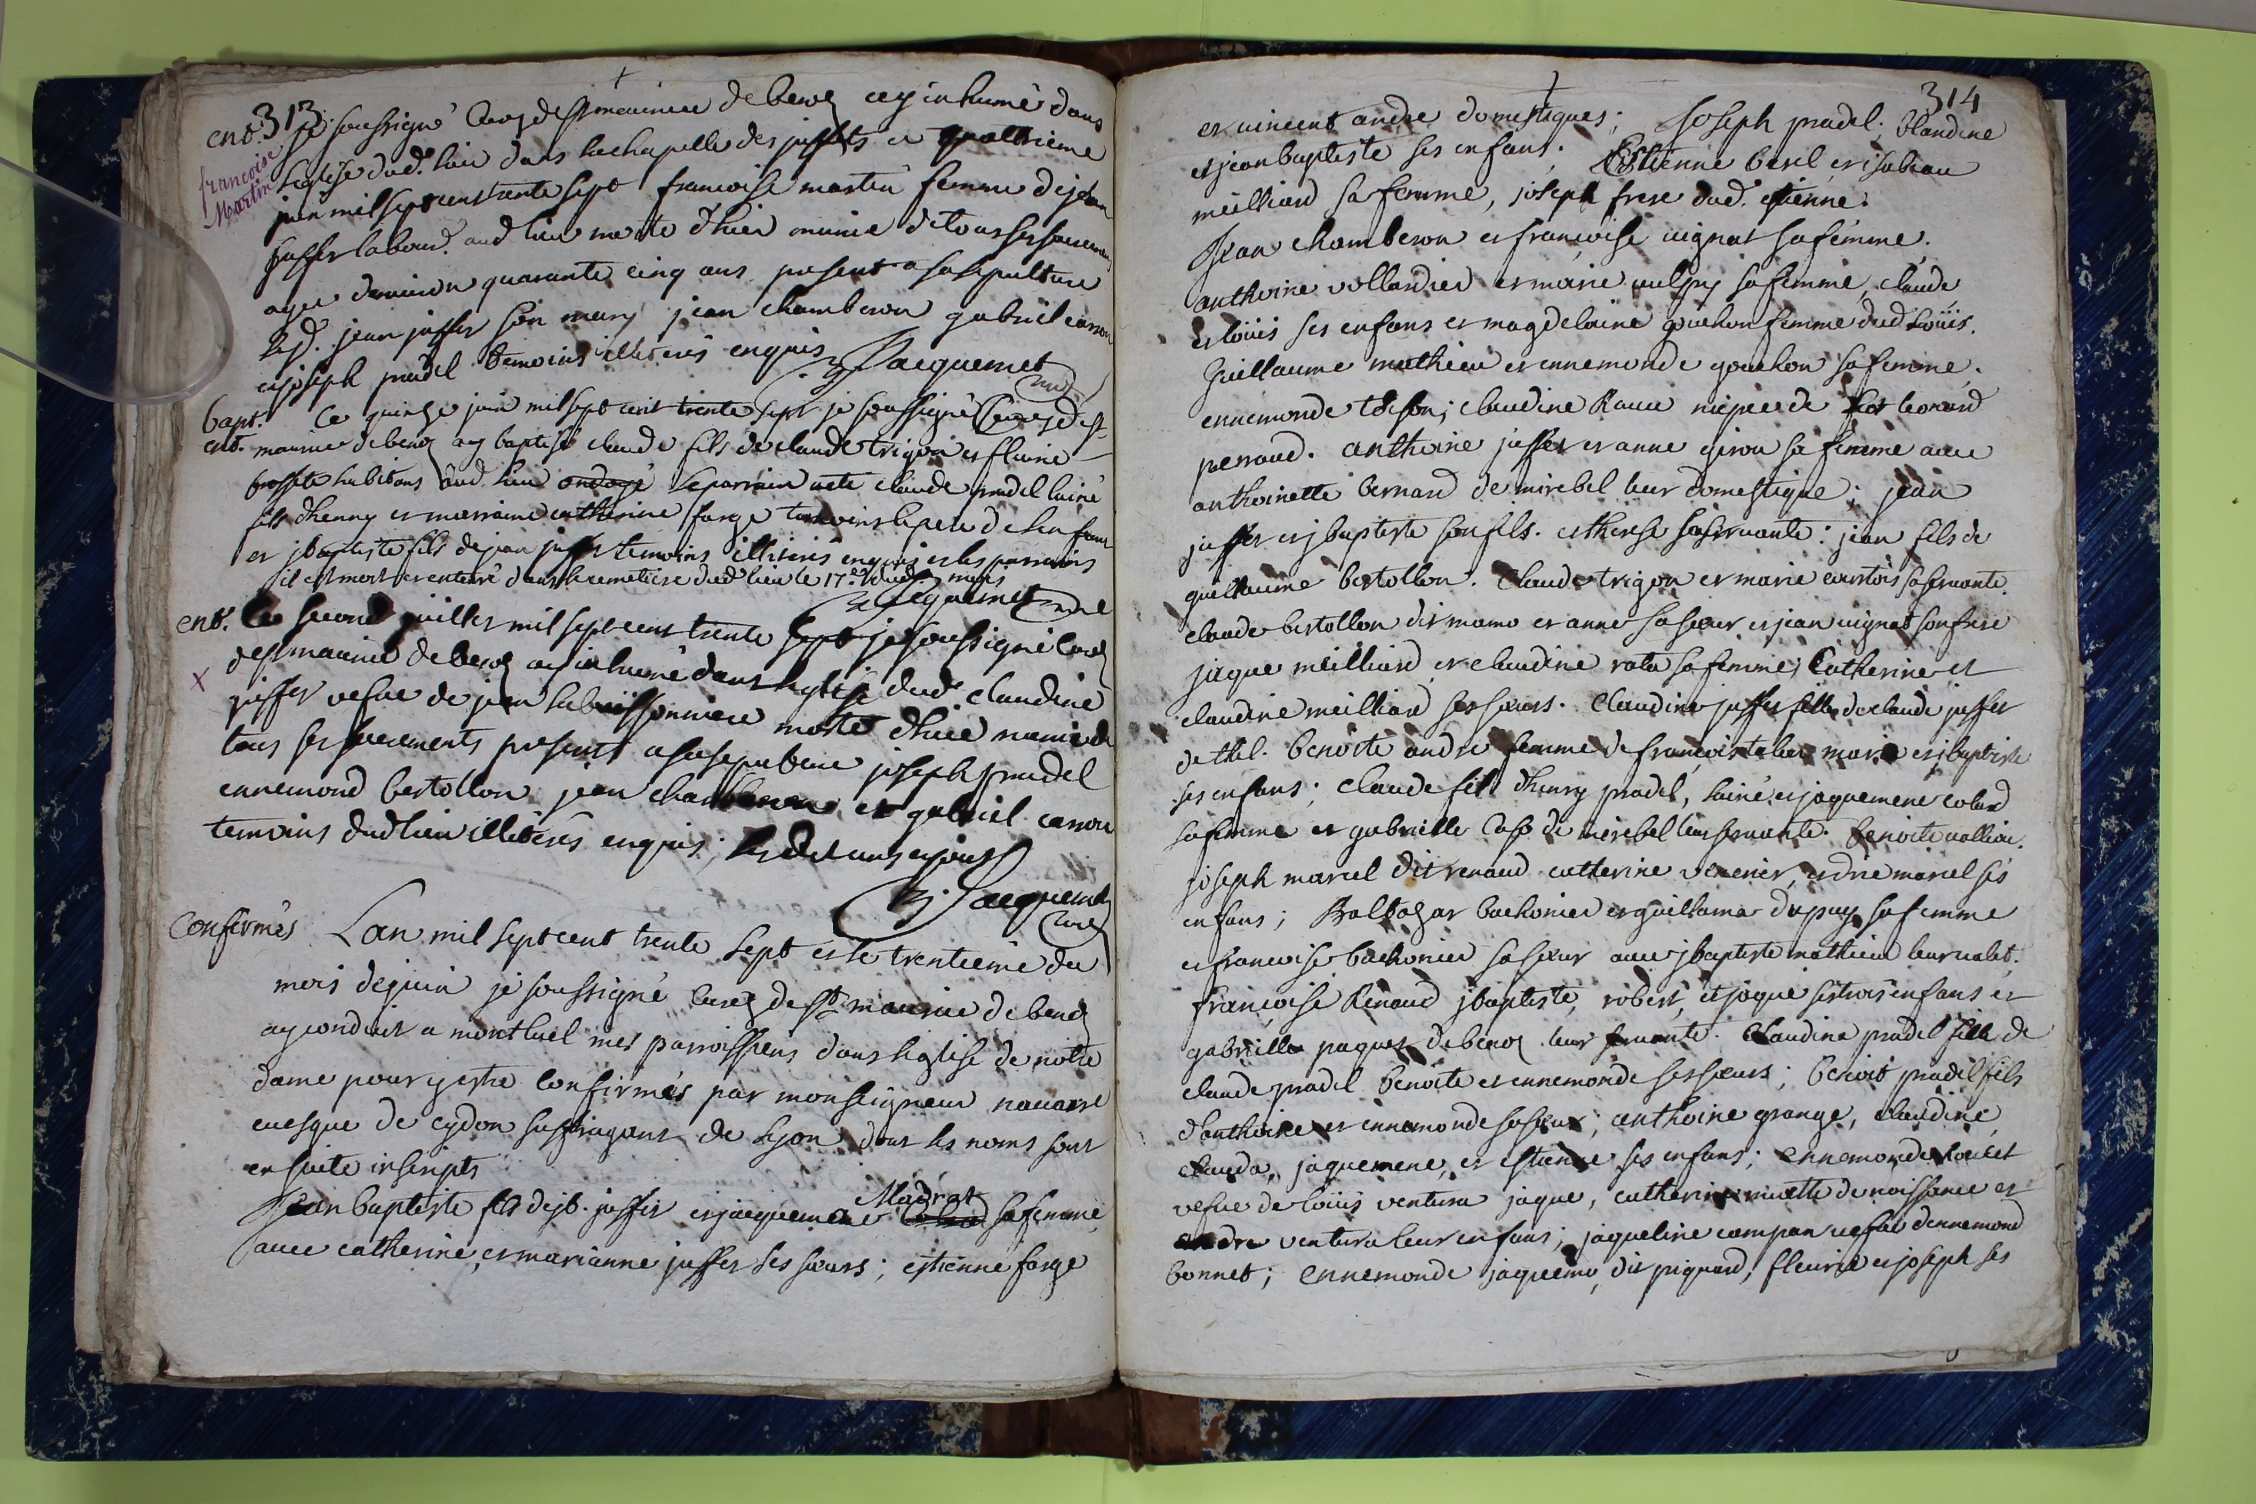 313
ent.
françoise
Martin
je soussigné Curé de st maurice de beno ay inhumé dans
leglise dud. lieu dans la chapelle des juffets ce quattrieme
juin mil sept cens trente sept francoise martin femme de jean
juffet labour. aud lieu morte d'hier munie de tous ses sacremens
agee d'environ quarante cinq ans present a sa sepulture
led. jean juffet son mary jean chamberon gabriel carron
et joseph pradel temoins illiterés enquis
Jacquemet
curé
bapt.
ent.
Ce quinze juin mil sept cent trente sept je soussigné Curé de st
maurice de beno ay baptisé claude fils de claude trigon et fleurie
brossette habitans aud. lieu ondoyé le parrain a été claude pradel lainé
fils d'henry et marraine catherine farge temoins le pere de lenfant
et jbaptiste fils de jean juffet temoins illiterés enquis et les parrains
il est mort et enterré dans le cemetiere dud lieu le 17e dud. mois
Jacquemet curé
ent.
X
Ce second juillet mil sept cent trente sept je soussigné Curé
de st maurice de beno ay inhumé dans leglise dud. claudine
juffet vefue de jean labuissonniere morte d'hier munie de
tous ses sacrements presents a sa sepulture joseph pradel
ennemond bertollon jean chamberon et gabriel carron
temoins dud lieu illiterés enquis; les dits ans et jours
Jacquemet
curé
Confirmés
Lan mil sept cent trente sept et le trentieme du
mois de juin je soussigné curé de st maurice de beno
ay conduit a montluel mes parroissiens dans leglise de notre
dame pour y estre confirmés par monseigneur navarre
evesque de cydon suffragant de Lyon dont les noms sont
ensuite inscripts
Jean baptiste fils de jb. juffet et jacquemene Madrat sa femme,
avec catherine, et marianne juffet ses sœurs; estienne farge
314
et vincent andre domestiques; Joseph pradel; blandine
et jean baptiste ses enfans; Estienne beril, et isabeau
meilliard sa femme, joseph frere dud. etienne.
Jean chamberon et françoise vignat sa fémme,
anthoine vollardier et marie sa femme, claude
et loüis ses enfans et magdelaine gouchon femme dud Loüis.
Guillaume mathieu et ennemonde gouchon sa femme,
ennemonde toison; claudine Raux niepce de leonard
perraud. anthoine juffet et anne giron sa femme avec
anthoinette bernard de mirebel leur domestique; jean
juffet et jbaptiste son fils. et therese sa servante: jean fils de
guillaume bertollon. Claude trigon et marie courtois sa servante.
claude bertollon dit mamo et anne sa sœur et jean vignat son frere
jaque meilliard et claudine rata sa femme, Catherine et
claudine meilliard ses sœurs. Claudine juffet fille de claude juffet
de thil. benoite andré femme de françois taber marie et jbaptiste
ses enfans; claude fils d'henry pradel, lainé et jaquemene colard
sa femme et gabrielle de mirebel leur servante. benoite vallion.
joseph marcel dit renaud catherine venerier, andre marcel ses
enfans; Baltazar bachonier et guillama dupuy sa femme
et francoise bachonier sa sœur avec jbaptiste mathieu leur valet,
françoise Renaud jbaptiste, robert, et jaque ses trois enfans et
gabrielle paquet de beno leur servante. Claudine pradel fille de
claude pradel benoite et ennemonde ses sœurs; benoit pradel fils
d'anthoine et ennemonde sa sœur; anthoine grange, claudine,
clauda, jaquemene, et estienne ses enfans; ennemonde
vefue de loüis ventura jaque, catherine muette de naissance et
andre ventura leur enfans; jaqueline compan vefue d'ennemond
bonnet; ennemonde jaquemo, dit pignard, fleurie et joseph ses